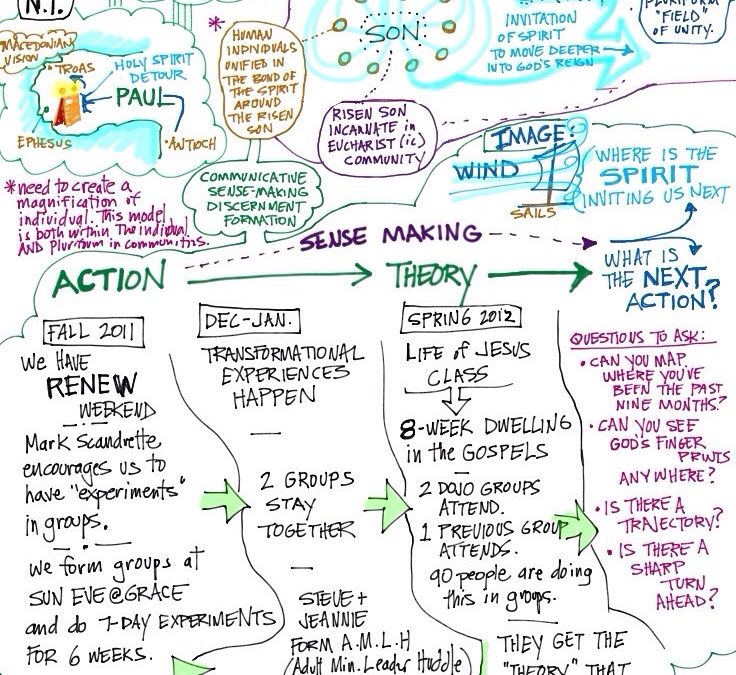 N.T.
MACEDONIAN
VISION
• TROAS
HOLY SPIRIT
DETOUR
PAUL
EPHESUS
• ANTIOCH
*
HUMAN
INDIVIDUALS
UNIFIED IN
THE BOND OF
THE SPIRIT
AROUND
THE RISEN
SON
SON
RISEN SON
INCARNATE in
EUCHARIST (ic)
COMMUNITY
INVITATION
OF SPIRIT
TO MOVE DEEPER
INTO GOD'S REIGN
PLURIFORM
"FIELD"
OF UNITY.
*need to create a
magnification of
individual. This model
is both within the individual
AND Pluritum in communities.
COMMUNICATIVE
SENSE-MAKING
DISCERNMENT
FORMATION
IMAGE:
WIND
SAILS
WHERE IS THE
SPIRIT
INVITING US NEXT
SENSE MAKING
ACTION
THEORY
WHAT IS
THE NEXT
ACTION?
FALL 2011
We HAVE
RENEW
WEEKEND
Mark Scandrette
encourages us to
have "experiments"
in groups.
We form groups at
SUN EVE@GRACE
and do 7-DAY EXPERIMENTS
FOR 6 WEEKS.
DEC-JAN.
TRANSFORMATIONAL
EXPERIENCES
HAPPEN
2 GROUPS
STAY
TOGETHER
STEVE +
JEANNIE
FORM A.M.L.H
(Adult Min. Leader Huddle)
SPRING 2012
LIFE of JESUS
CLASS
8-WEEK DWELLING
in the GOSPELS
2 DOJO GROUPS
ATTEND.
1 PREVIOUS GROUP
ATTENDS.
90 people are doing
this in groups.
THEY GET THE
"THEORY" THAT
QUESTIONS TO ASK:
• CAN YOU MAP
WHERE YOU'VE
BEEN THE PAST
NINE MONTHS?
• CAN YOU SEE
GOD'S FINGER
PRINTS
ANYWHERE?
• IS THERE A
TRAJECTORY?
• IS THERE A
SHARP
TURN
AHEAD?